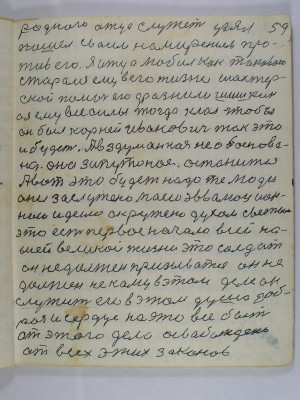 родного отца служет уехал 59
пошел своим намирением про-
тив его. Я отца любил как такового
старались ему в его жизни шахтер-
ской помоч его дразнили шишкин
а я ему все силы тогда клал чтобы
он был корней иванович так это
и будет. А вздуманная не основа-
на. она запутаное. останится
А вот это будет надо те люди
они заслужено моего эволюцион-
ного идеино окружено духом светим
это есть первое начало всей на-
шей великой жизни это солдат
он недолжен призыватся он не
должен некому в этом деле он
служит его в этом душа доб-
рая и сердце на это все быть
от этого дело освабожден
от всех этих законов